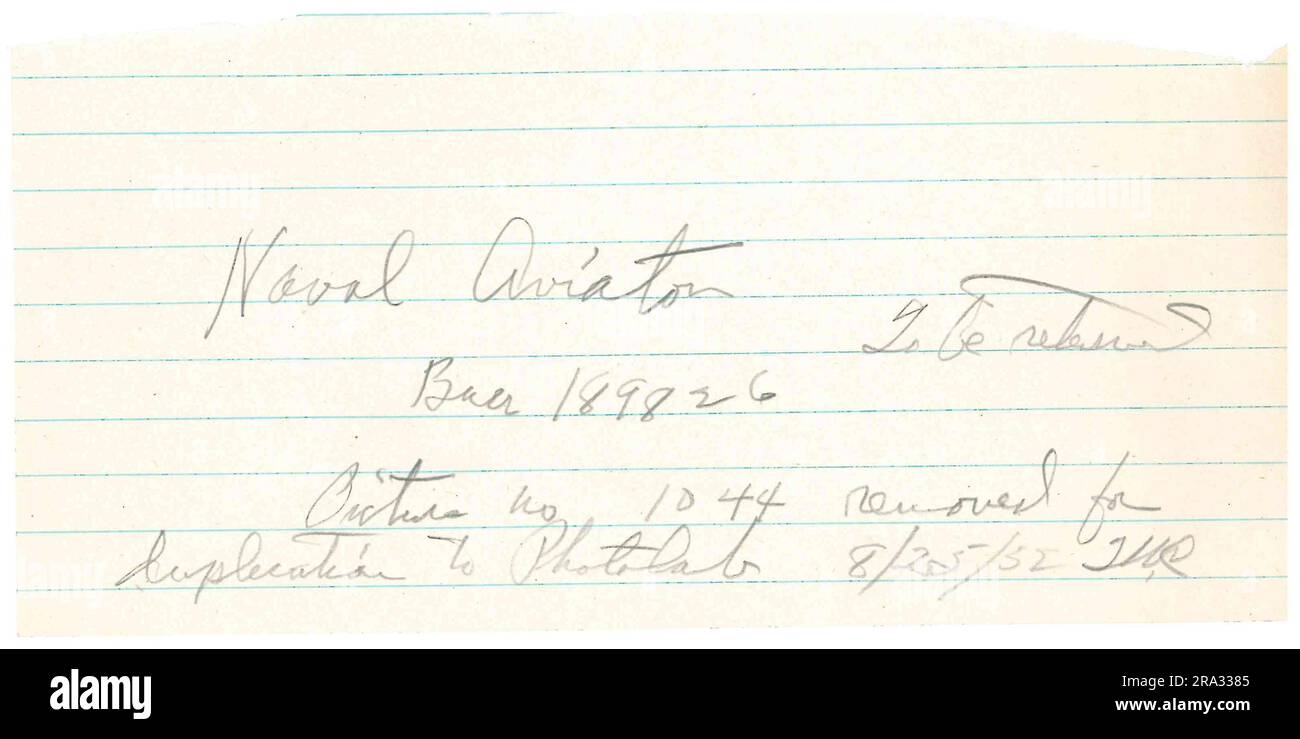 Naval Aviator
To be returned
Buer 189826
Picture no 1044 removed for
duplication to Photolab 8/25/52
alamy
Image ID: 2RA3385
www.alamy.com